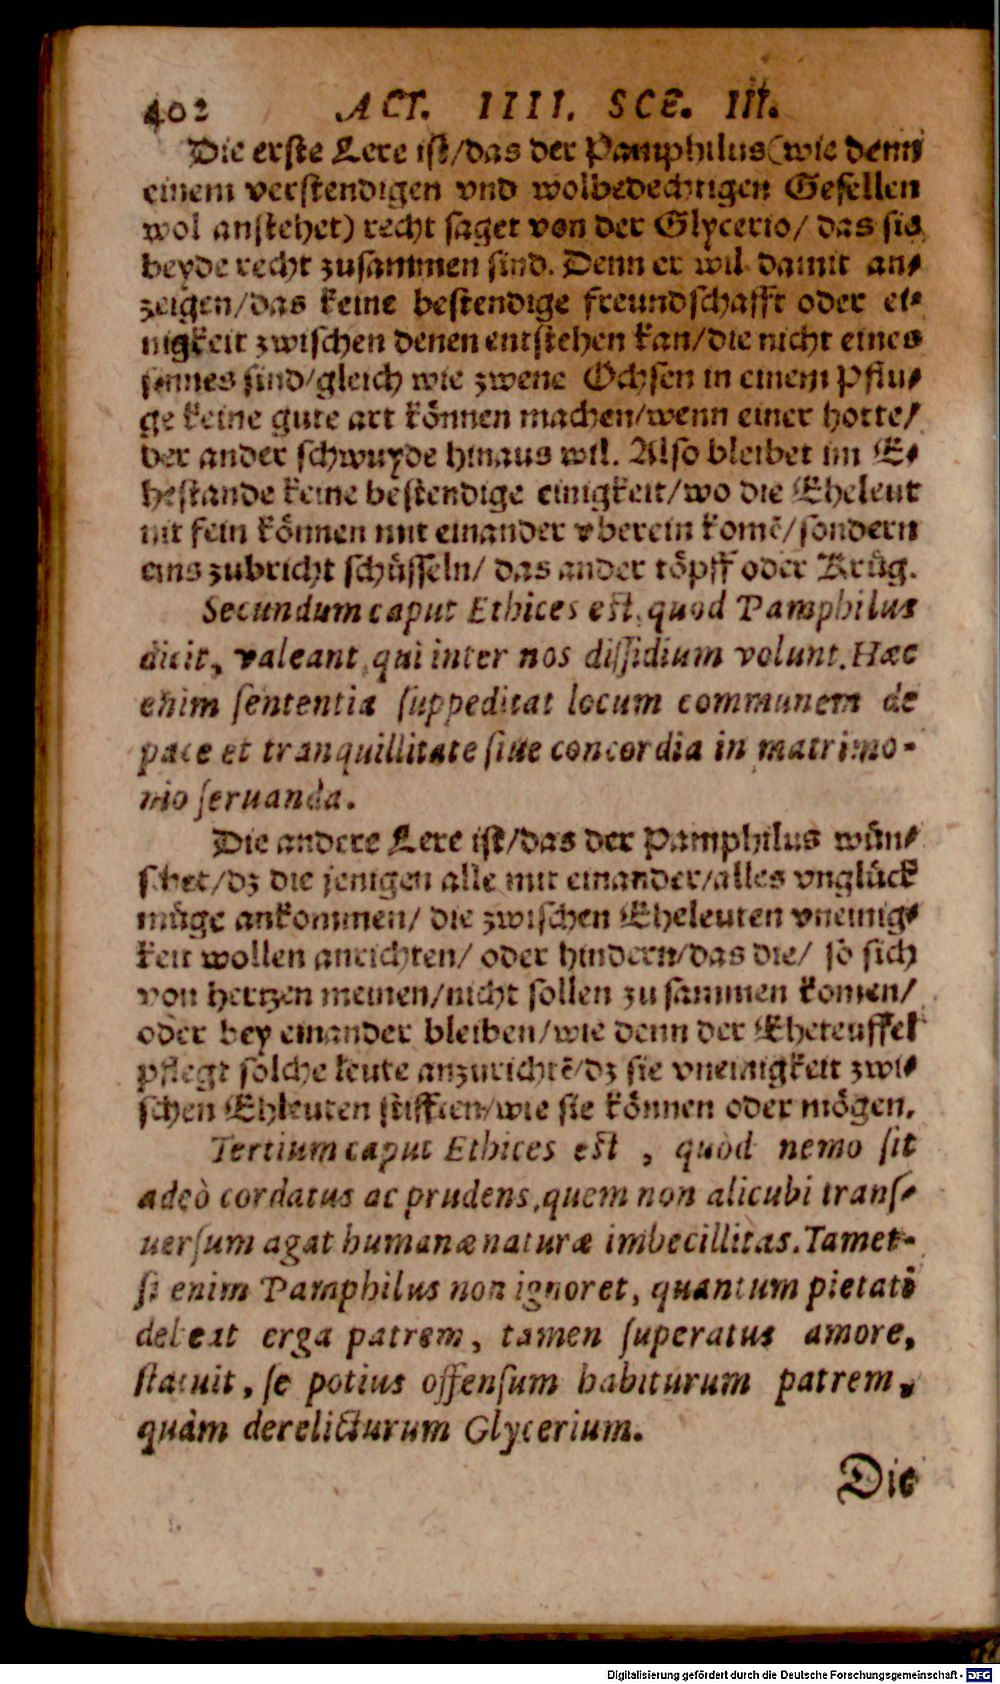 402 ACT. IIII. SCE. III.
Die erste Lere ist/das der Pamphilus (wie denn
einem verstendigen vnd wolbedechtigen Gesellen
wol anstehet) recht saget von der Glycerio/ das sie
beyde recht zusammen sind. Denn er wil damit an⸗
zeigen/das keine bestendige freundschafft oder ei⸗
nigkeit zwischen denen entstehen kan/die nicht eines
sinnes sind/gleich wie zwene Ochsen in einem Pflu⸗
ge keine gute art können machen/wenn einer hotte/
der ander schwuyde hinaus wil. Also bleibet im E⸗
hestande keine bestendige einigkeit/wo die Eheleut
nit fein können mit einander vberein komē/sondern
eins zubricht schüsseln/ das ander töpff oder Krüg.
Secundum caput Ethices est, quod Pamphilus
dicit, valeant qui inter nos dissidium volunt. Hæc
enim sententia suppeditat locum communem de
pace et tranquillitate siue concordia in matrimo-
nio seruanda.
Die andere Lere ist/das der Pamphilus wün⸗
schet/dz die jenigen alle mit einander/alles vnglück
müge ankommen/ die zwischen Eheleuten vneinig⸗
keit wollen anrichten/ oder hindern/das die/ so sich
von hertzen meinen/nicht sollen zu sammen komen/
oder bey einander bleiben/wie denn der Eheteuffel
pflegt solche leute anzurichtē/dz sie vneinigkeit zwi⸗
schen Ehleuten stifften/wie sie können oder mögen.
Tertium caput Ethices est, quòd nemo sit
adeò cordatus ac prudens, quem non alicubi trans-
uersum agat humanæ naturæ imbecillitas. Tamet-
si enim Pamphilus non ignoret, quantum pietatis
debeat erga patrem, tamen superatus amore,
statuit, se potius offensum habiturum patrem,
quàm derelicturum Glycerium.
Die
Digitalisierung gefördert durch die Deutsche Forschungsgemeinschaft - DFG